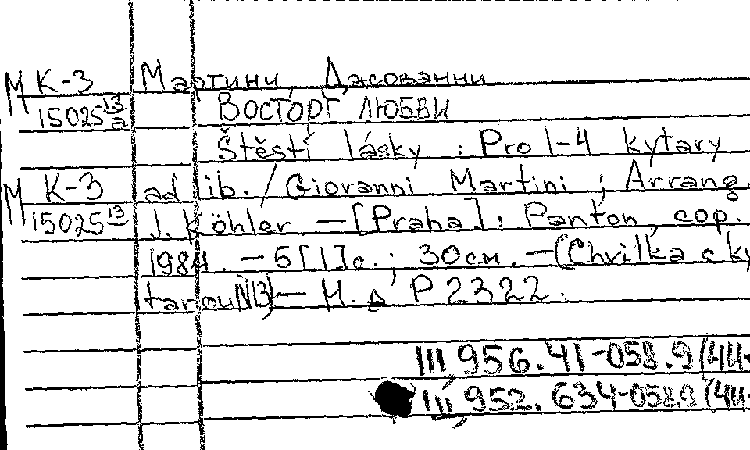 М К-3 Мартини, Джованни
15025 13/а ВОСТОРГ ЛЮБВИ
Štěstí lásky : Pro 1-4 kytary
М К-3 ad lib. / Giovanni Martini ; Arrang.
15025 13 J. Köhler. — [Praha] : Panton, cop.
1984. — 5[1]с. ; 30см. — (Chvilka s ky
tarou N13) — Н.д. P 2322.
Ш 956.41-058.9(4Ч-
Ш 952.634-058.9(4Ч-